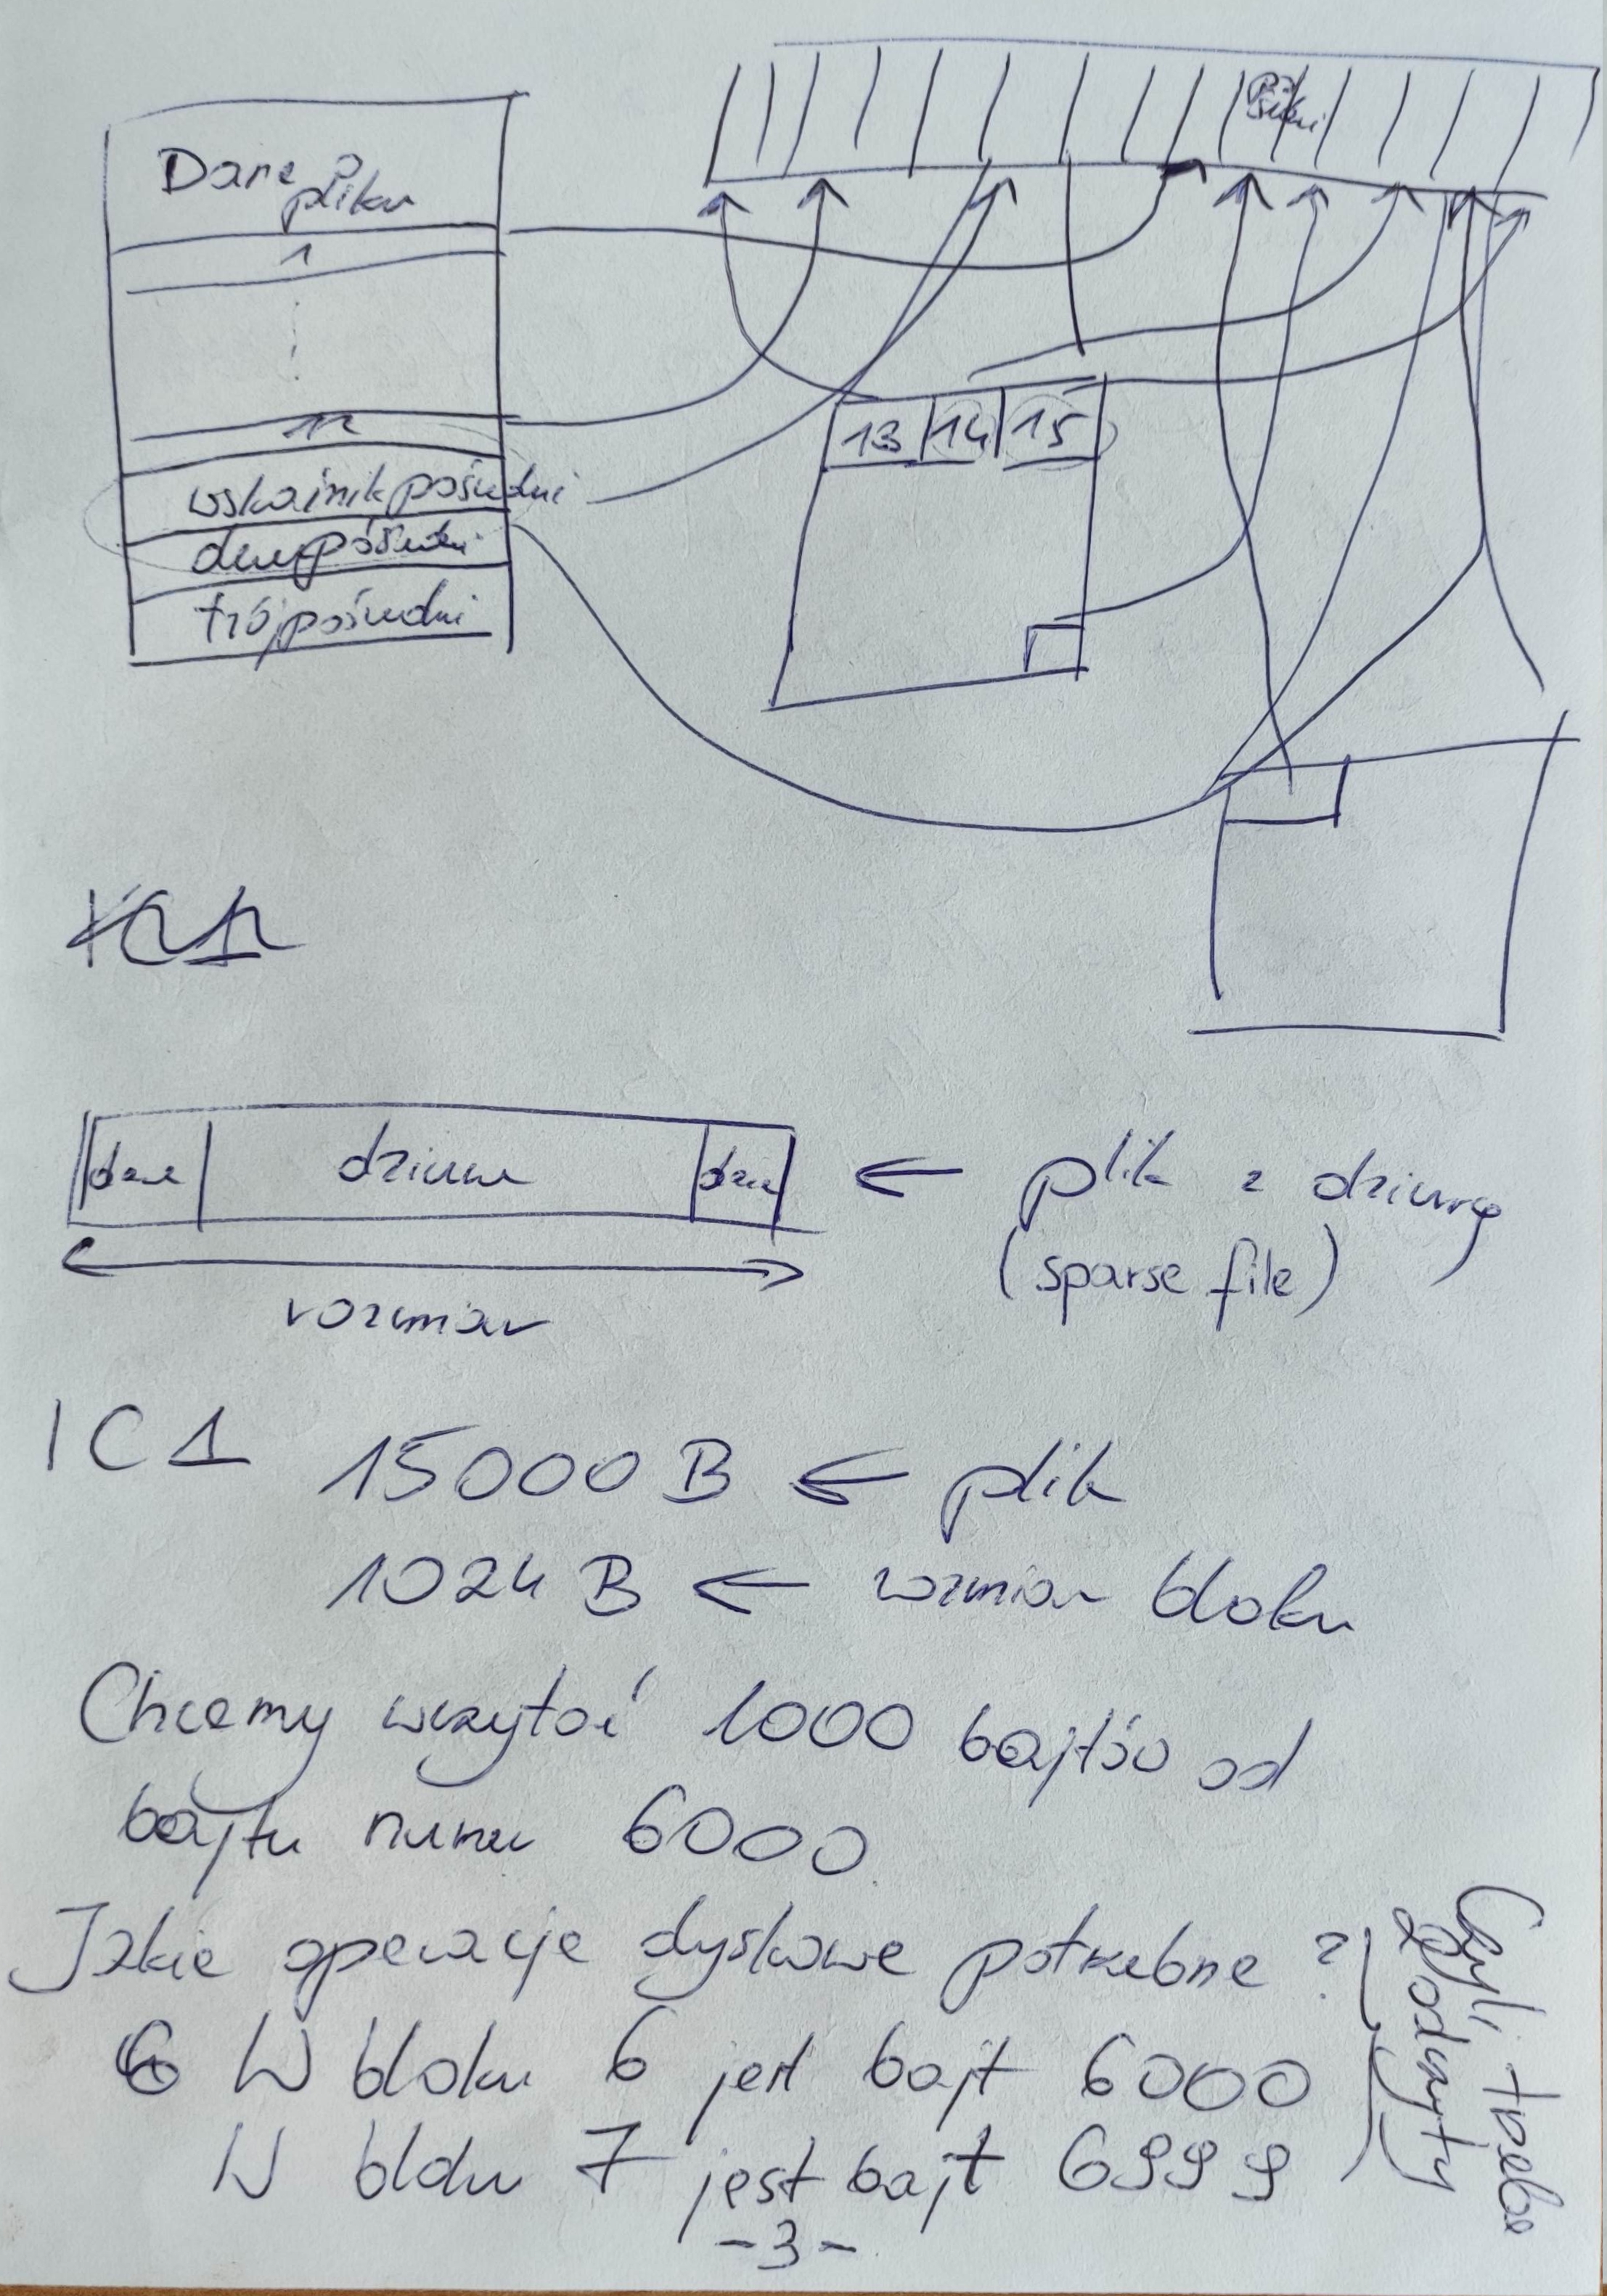 Dane
pliku
1
12
wskaźnik pośredni
dwupośredni
trójpośredni
13 14 15
IC1
dane dziura dane ← plik z dziurą
(sparse file)
rozmiar
IC1
15000 B ← plik
1024 B ← rozmiar bloku
Chcemy wczytać 1000 bajtów od
bajtu numer 6000
Jakie operacje dyskowe potrzebne?
6 W bloku 6 jest bajt 6000
W bloku 7 jest bajt 6999
Czyli trzeba
2 odczyty
-3-